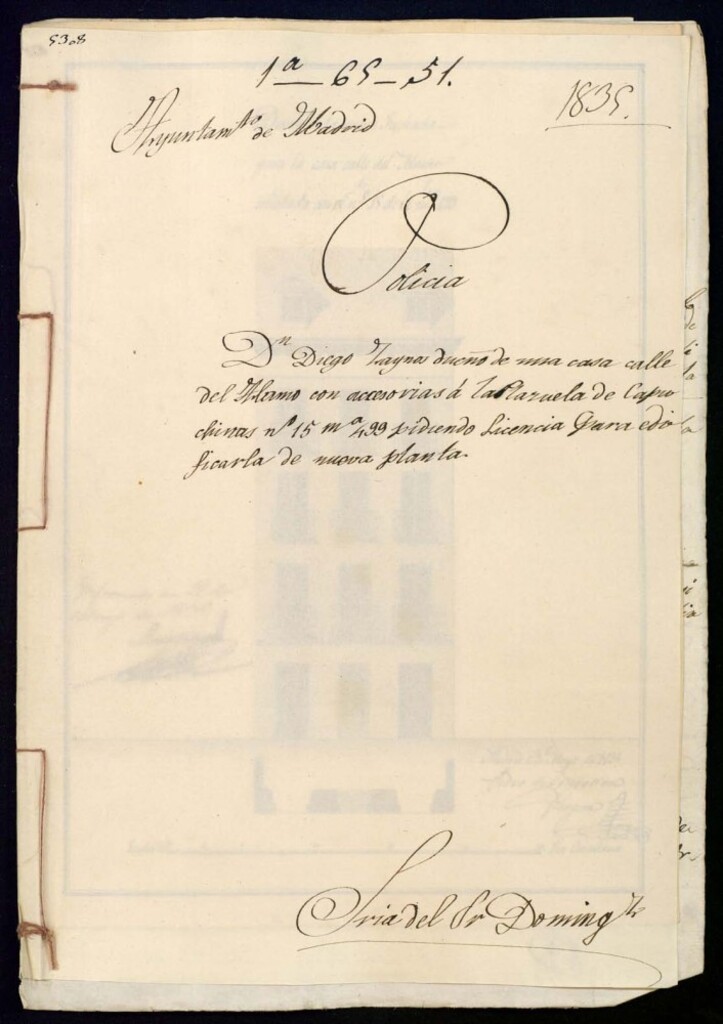 5308
1ª — 65 — 51.
1835.
Ayuntamto de Madrid
Policia
Dn Diego dueño de una casa calle
del Alamo con accesorias á la Plazuela de Capu
chinas nº 15 mª 499 pidiendo licencia para edi
ficarla de nueva planta.
Sria del Sr Doming